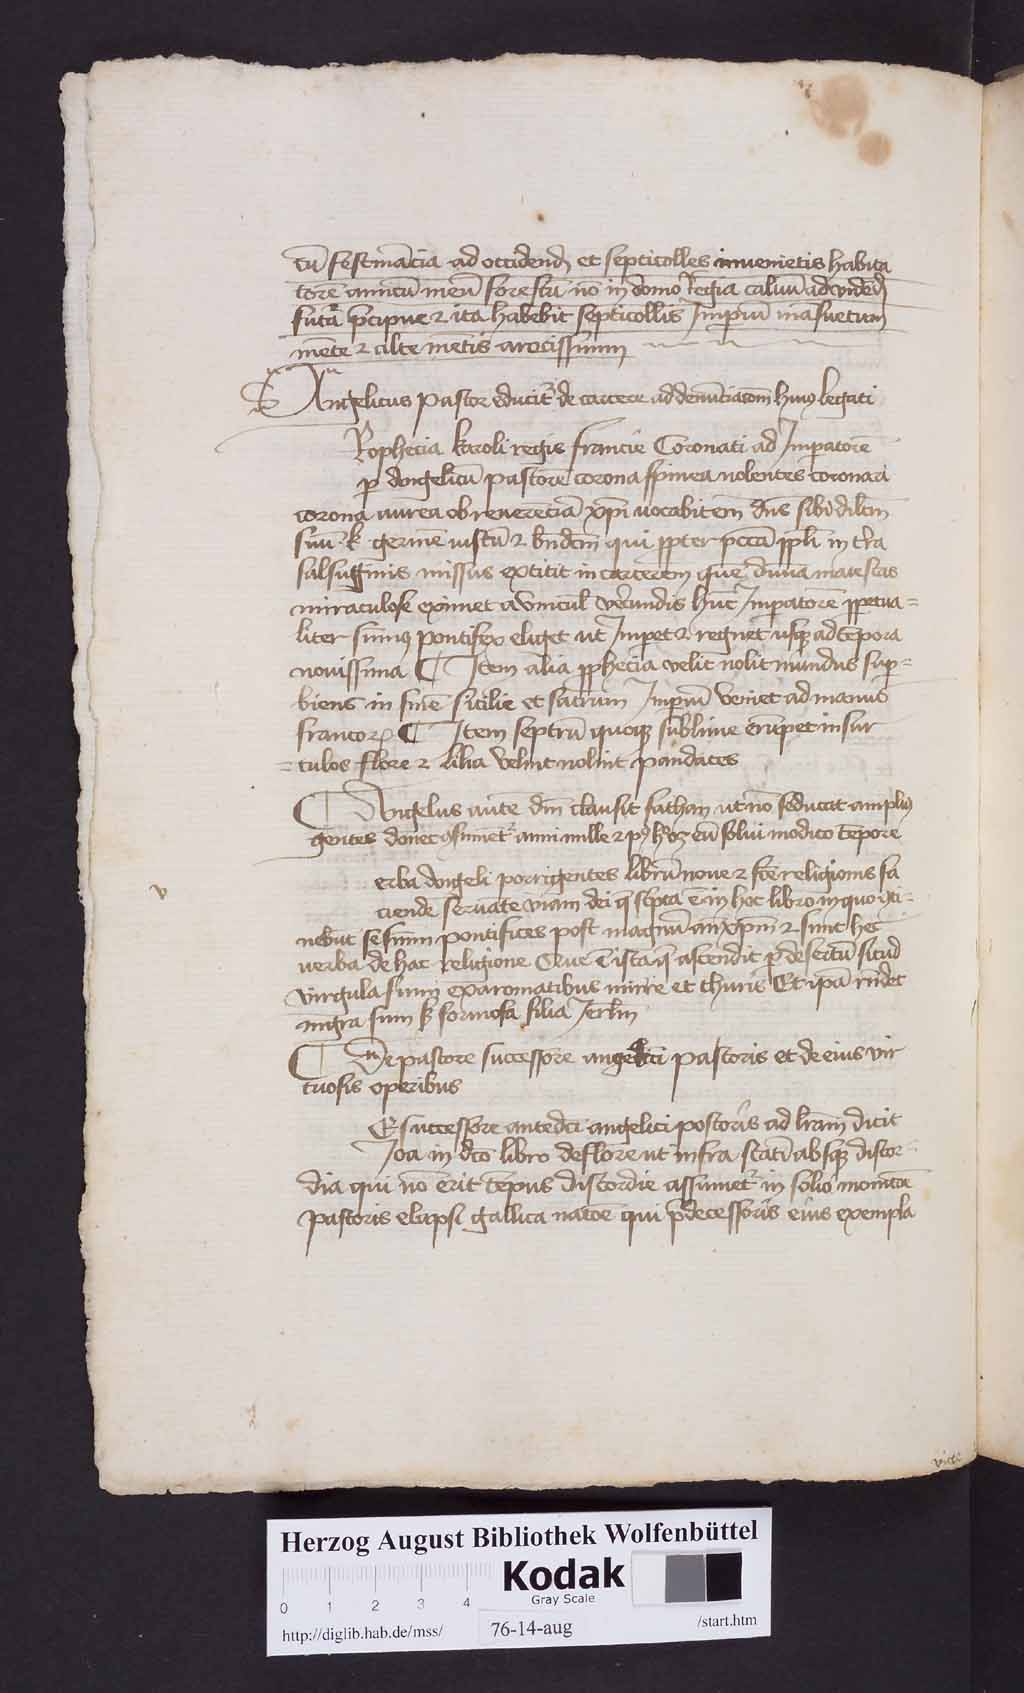 cū festinācia ad occidend et septicolles invenietis habita
torē amicū meū forestū nō in domo regia calvū ad vidend
futā p̄cipue ⁊ ita habebit septicollis Imꝑiū māsuetum
mēte ⁊ alte mētis atrocissimum
Angelicus pastor educit᷑ de carcere ad denūciacōm huiꝰ legati
Rophecia karoli regis francie Coronati ad Imꝑatorē
ꝑ Angelicū pastorē corona spinea nolentes coronari
corona aurea ob reverēciā xp̄i vocabit em̄ dn̄s sibi dilcm̄
suū k germē iustū ⁊ bn̄dcm̄ qui ꝓpter pccā ꝓpli in t̄ra
salsuginis missus extitit in carcerem que divina maiestas
miraculose eximet a vincul̄ verendis hūc Imꝑatorē ꝑpetua=
liter sūmꝰ pontifex eliget ut Imꝑet ⁊ regnet usqꝫ ad tēpora
novissima ¶ Item alia ꝓphecia velit nolit mundus suꝑ=
biens in sinē sicilie et sacrum Imꝑiū veniet ad manus
francoꝝ ¶ Item septrū quoqꝫ sublime erūpet in sur
=culos flore ⁊ lilia velint nolint pandates
¶ Angelus autē dīn clausit sathan ut nō seducat ampliꝰ
gentes donec ꝯsumet᷑ anni mille ⁊ pꝰ hoꝫ eū solvi modico tēpore
v
erba Angeli porrigentes librū nove ⁊ scē religionis fa
ciende servate viam dei q̄ scpta ē in hoc libro in quo ꝯti=
nebūt se sūmi pontifices post magnū antixpm̄ ⁊ sunt hec
verba de hac religione Que ē ista q̄ ascendit ꝑ desertū sicud
virgula fumi ex aromatibus mirre et thuris Et ip̄a rn̄det
nigra sum sꝫ formosa filia Jerlm̄
¶ De pastore successore angelici pastoris et de eius vir
tuosis operibus
E successore antedc̄i angelici pastoris ad lr̄am dicit
Joa in dc̄o libro de flore ut infra statī absqꝫ discor=
dia qui nō erit tēpus discordie assumet᷑ in solio
pastoris elapsi gallica natōe qui p̄decessoris eius exempla
Herzog August Bibliothek Wolfenbüttel
Kodak
Gray Scale
0 1 2 3 4
http://diglib.hab.de/mss/ 76-14-aug /start.htm